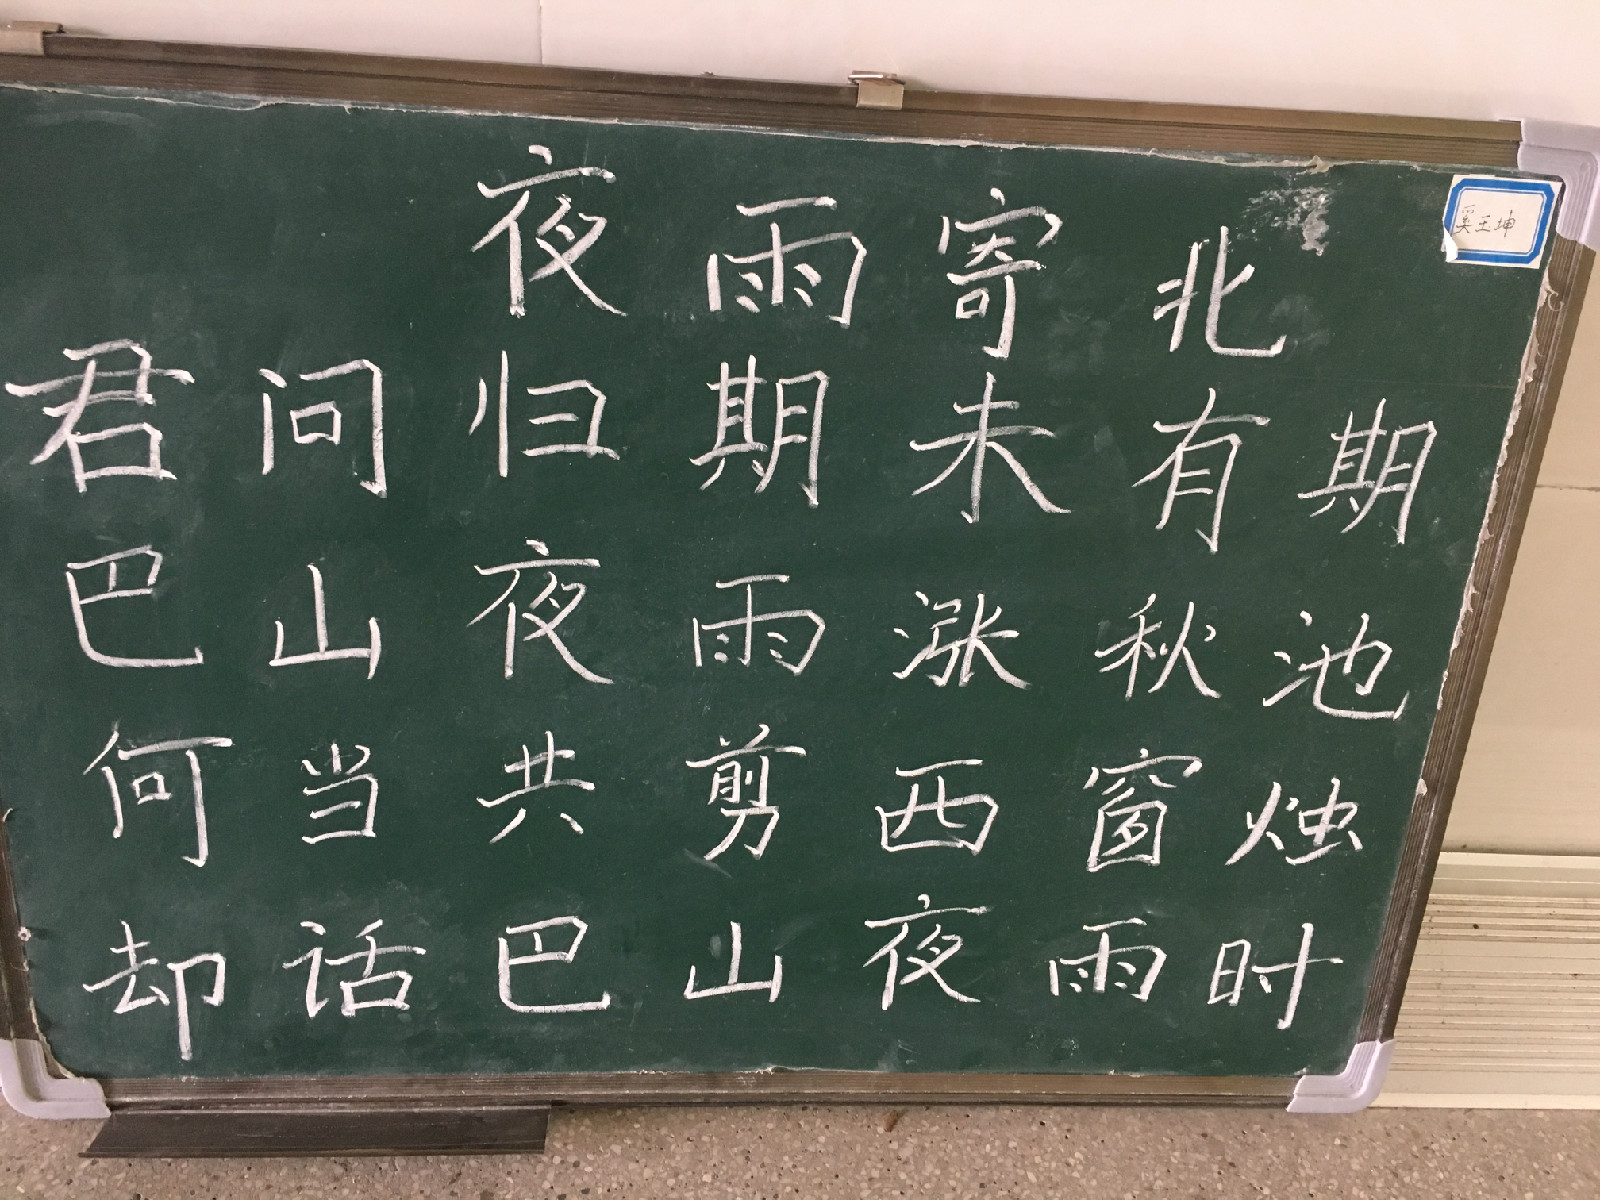 夜雨寄北
奚玉坤
君问归期未有期
巴山夜雨涨秋池
何当共剪西窗烛
却话巴山夜雨时